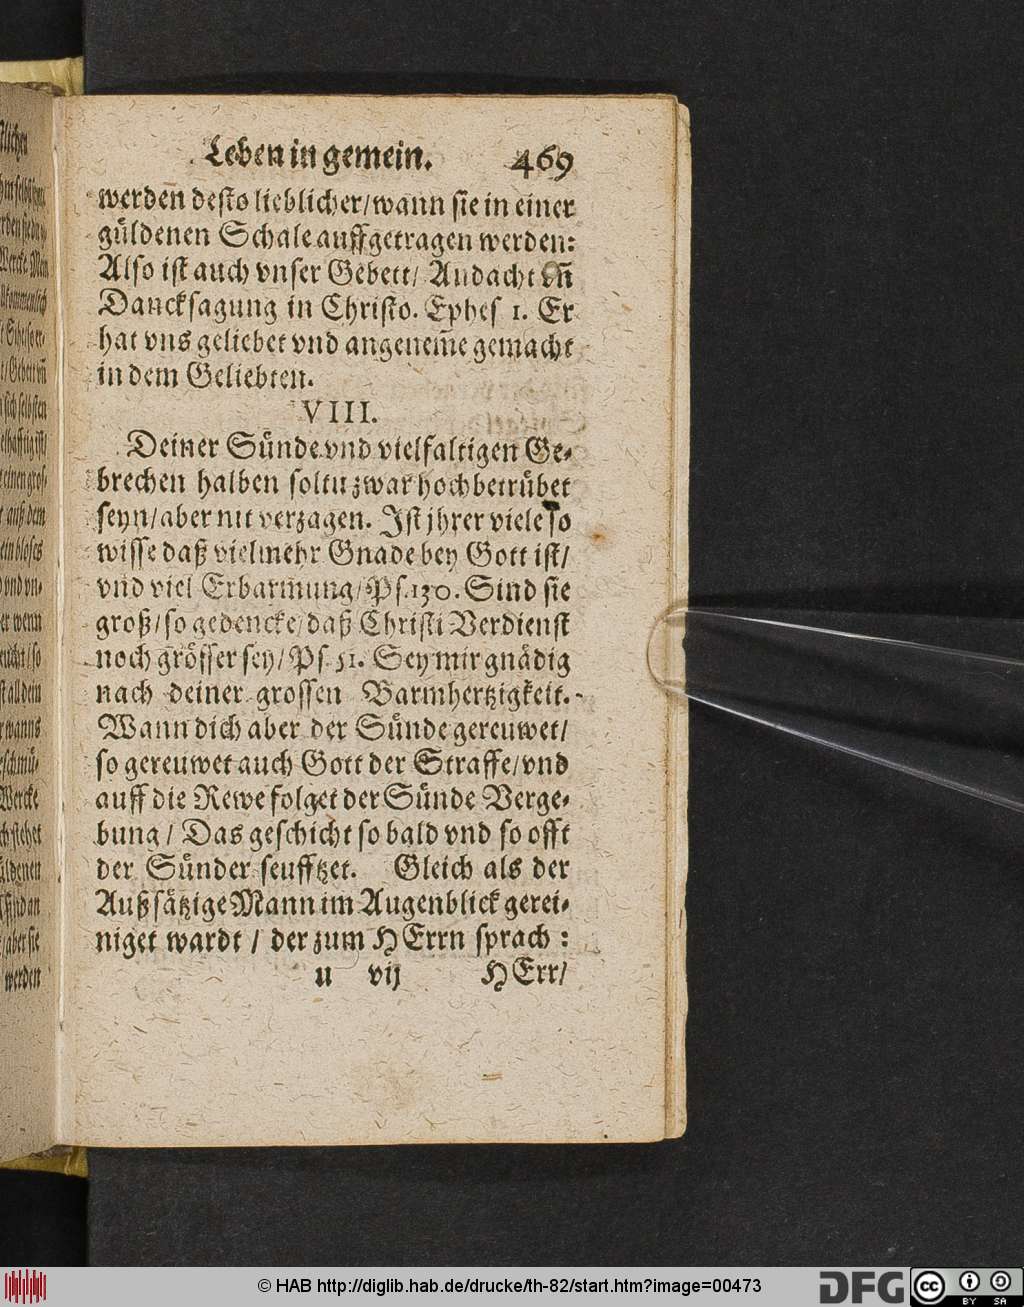 Leben in gemein. 469
werden desto lieblicher/wann sie in einer
güldenen Schale auffgetragen werden:
Also ist auch vnser Gebett/ Andacht vñ
Dancksagung in Christo. Ephes 1. Er
hat vns geliebet vnd angenem̃e gemacht
in dem Geliebten.
VIII.
Deiner Sünde vnd vielfaltigen Ge-
brechen halben soltu zwar hochbetrübet
seyn/aber nit verzagen. Ist jhrer viele so
wisse daß vielmehr Gnade bey Gott ist/
vnd viel Erbarmung/Ps.130. Sind sie
groß/so gedencke/daß Christi Verdienst
noch grösser sey/Ps 51. Sey mir gnädig
nach deiner grossen Barmhertzigkeit.
Wann dich aber der Sünde gereuwet/
so gereuwet auch Gott der Straffe/vnd
auff die Rewe folget der Sünde Verge-
bung / Das geschicht so bald vnd so offt
der Sünder seufftzet. Gleich als der
Außsätzige Mann im Augenblick gerei-
niget wardt / der zum HErrn sprach :
u vij HErr/
© HAB http://diglib.hab.de/drucke/th-82/start.htm?image=00473
DFG
cc BY SA